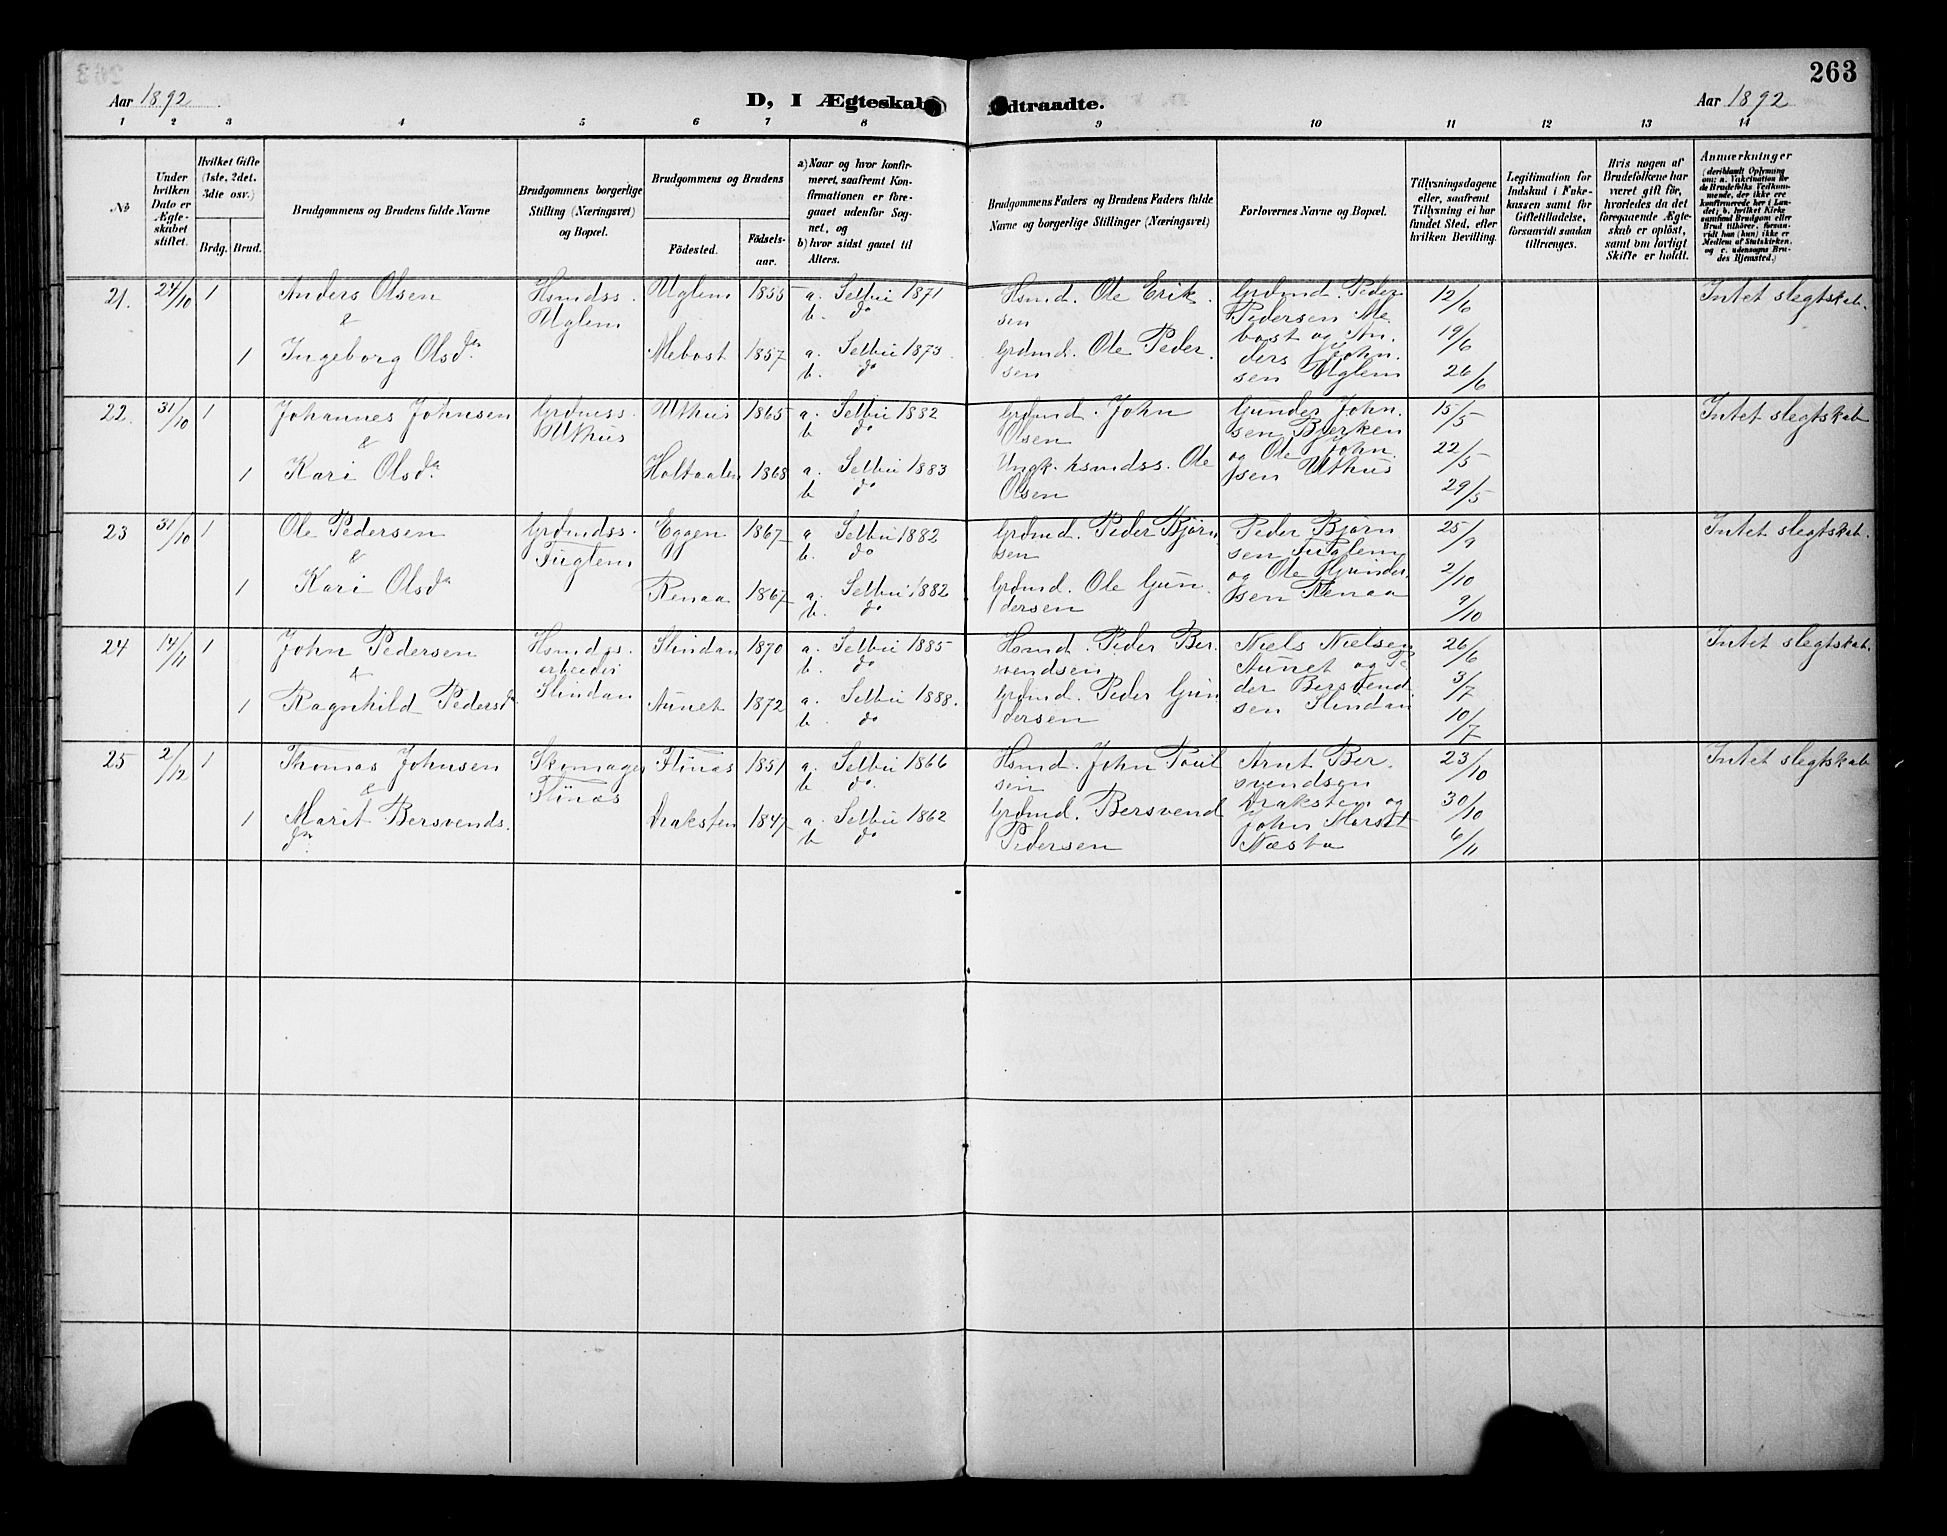 263
Aar 1892
D, I Ægteskab Indtraadte.
Aar 1892
1 2 3 4 5 6 7 8 9 10 11 12 13 14
№
Under hvilken Dato er Ægteskabet stiftet.
Hvilket Gifte (1ste, 2det, 3die osv.)
Brdg. Brud.
Brudgommens og Brudens fulde Navne
Brudgommens borgerlige Stilling (Næringsvei) og Bopæl.
Brudgommens og Brudens
Födested.
Födselsaar.
a) Naar og hvor konfirmeret, saafremt Konfirmationen er foregaaet udenfor Sognet, og
b) hvor sidst gaaet til Alters.
Brudgommens Faders og Brudens Faders fulde Navne og borgerlige Stillinger (Næringsvei)
Forlovernes Navne og Bopæl.
Tillysningsdagene eller, saafremt Tillysning ei har fundet Sted, efter hvilken Bevilling.
Legitimation for Indskud i Enkekassen samt for Giftetilladelse, forsaavidt saadan tiltrænges.
Hvis nogen af Brudefolkene har været gift för, hvorledes da det foregaaende Ægteskab er oplöst, samt om lovligt Skifte er holdt.
Anmærkninger (deriblandt Oplysning om: a. Vakcination for de Brudefolks Vedkommende, der ikke ere konfirmerede her i Landet; b. hvilket Kirkesamfund Brudgom eller Brud tilhörer, forsaavidt han (hun) ikke er Medlem af Statskirken, og c. udensogns Brudes Hjemsted.)
21. 24/10 1 Anders Olsen Hsmdss. Uglem 1855 a. Selbu 1871 Hsmd. Ole Erik- Grdmd. Peder 12/6 Intet slegtskab.
& Uglem b. do sen Pedersen Me-
1 Ingeborg Olsdr. Mebost 1857 a. Selbu 1873. Grdmd. Ole Peder- bost og An- 19/6
b. do sen ders John-
sen Uglem 26/6
22. 31/10 1 Johannes Johnsen Grdmss. Uthus 1865 a. Selbu 1882 Grdmd. John Gunder John- 15/5 Intet slegtskab
& Uthus b do Olsen sen Bjerken
1 Kari Olsdr. Holtaalen 1868 a. Selbu 1883 Ungk. hsmdss. Ole og Ole John- 22/5
b do Olsen sen Uthus 29/5
23 31/10 1 Ole Pedersen Grdmdss. Eggen 1867 a Selbu 1882 Grdmd. Peder Bjørn- Peder Bjørn- 25/9 Intet slegtskab.
& Fuglem b. do sen sen Fuglem
1 Kari Olsdr Renaa 1867 a. Selbu 1882 Grdmd. Ole Gun- og Ole Gunder- 2/10
b. do dersen sen Renaa 9/10
24 14/11 1 John Pedersen Hsmdss. Slindan 1870 a. Selbu 1885 Hsmd. Peder Ber- Niels Nielsen 26/6 Intet slegtskab.
& arbeider b. do svendsen Aunet og Pe-
1 Ragnhild Pedersdr Slindan Aunet 1872 a. Selbu 1888. Grdmd. Peder Gun- der Bersvend- 3/7
b. do dersen sen Slindan 10/7
25 2/12 1 Thomas Johnsen Skomager Flønæs 1851 a. Selbu 1866 Hsmd. John Poul- Arnt Ber- 23/10 Intet slegtskab
& Flønæs b do. sen svendsen
1 Marit Bersvends- Draksten 1847 a. Selbu 1862 Grdmd. Bersvend Draksten og 30/10
dr. b do Pedersen John
Næsta 6/11